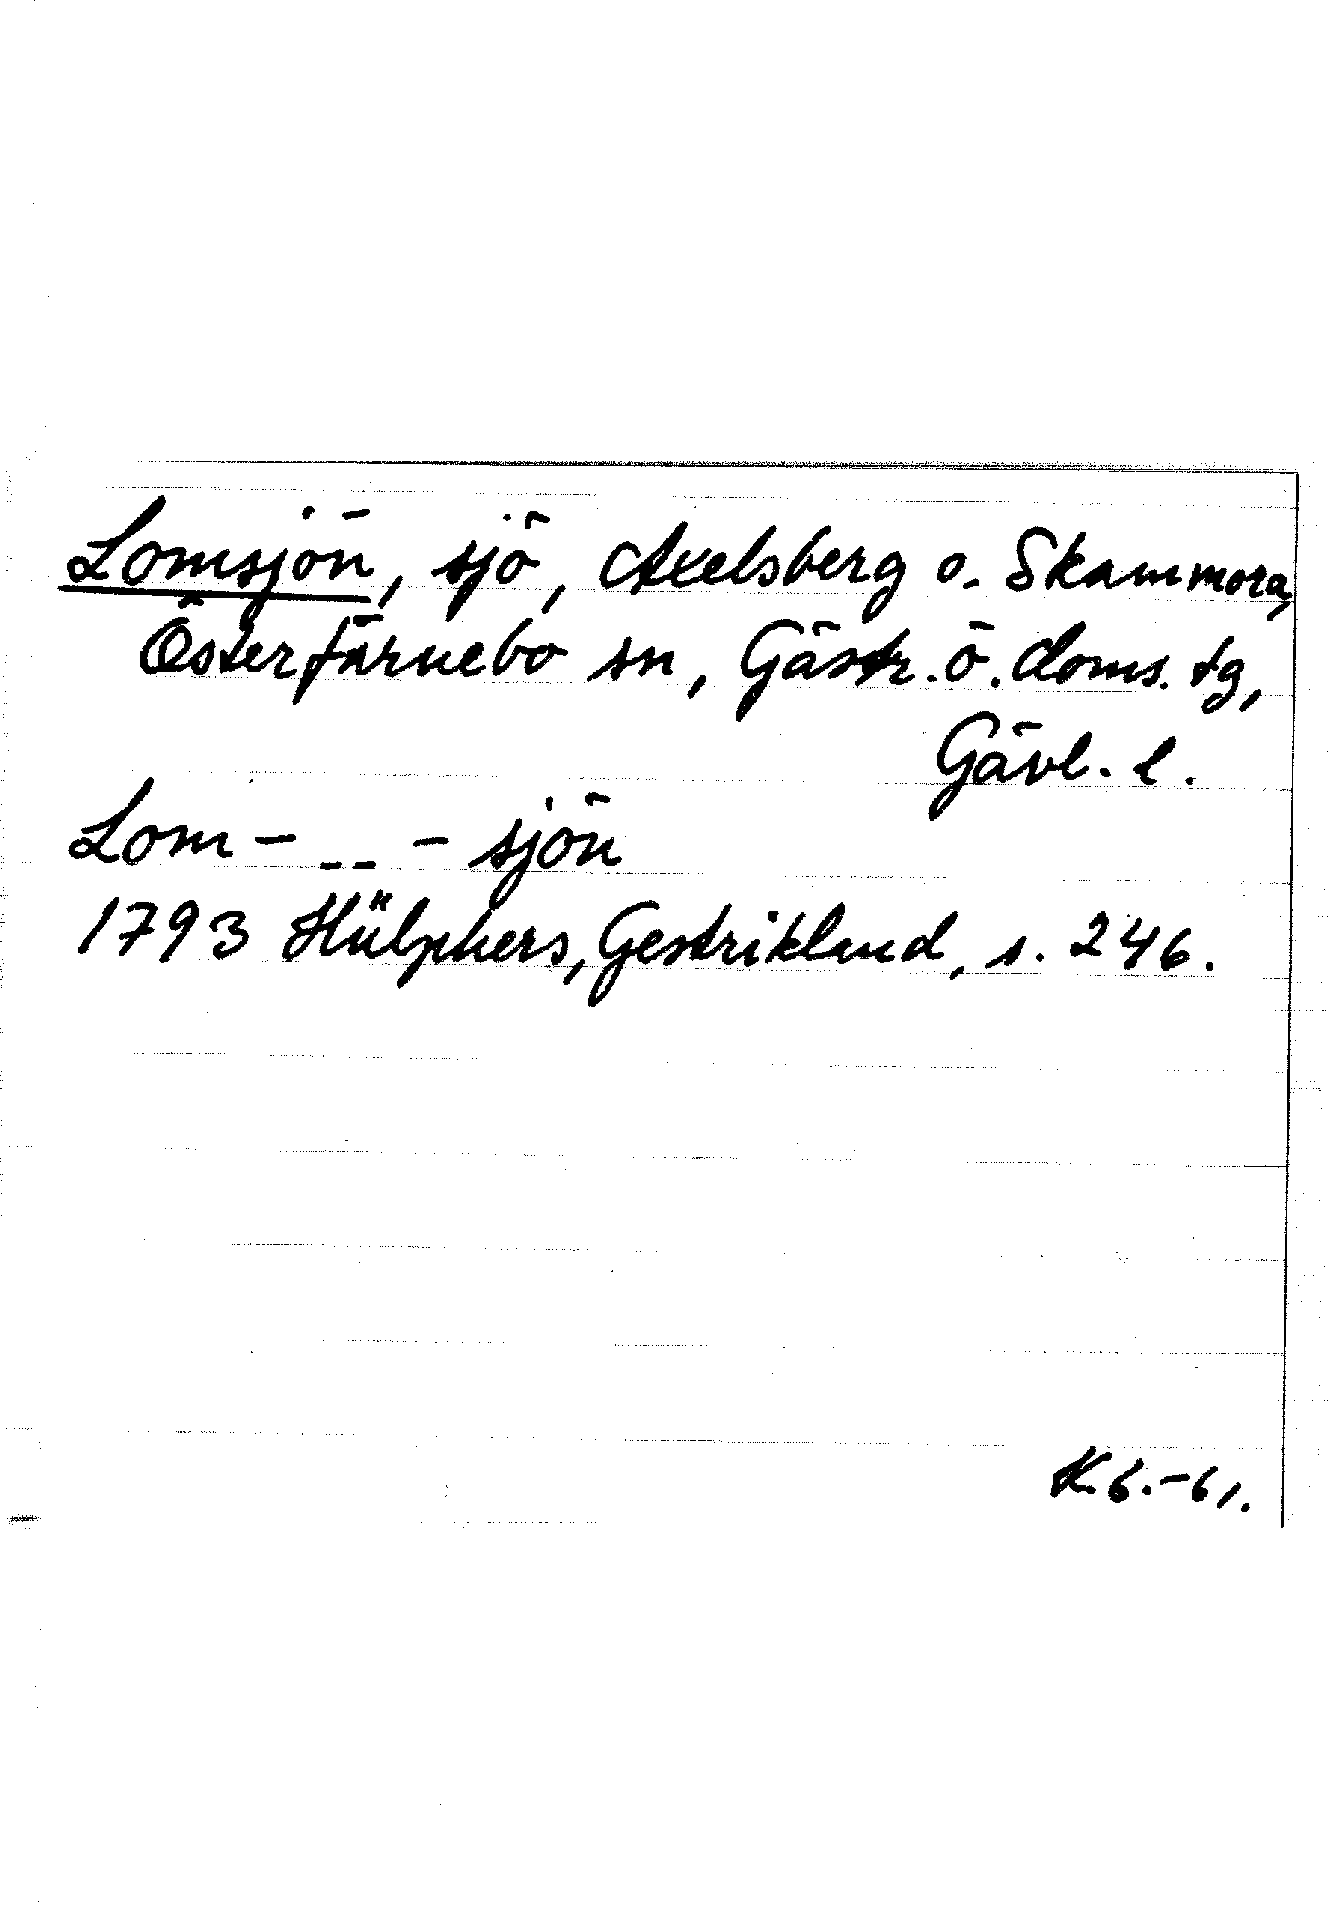 Lomsjön, sjö, Axelsberg o. Skammora,
Österfärnebo sn, Gästr. ö. doms. tg,
Gävl. l.
Lom - _ _ - sjön
1793 Hülphers, Gestrikland, s. 246.
K.G.-61.